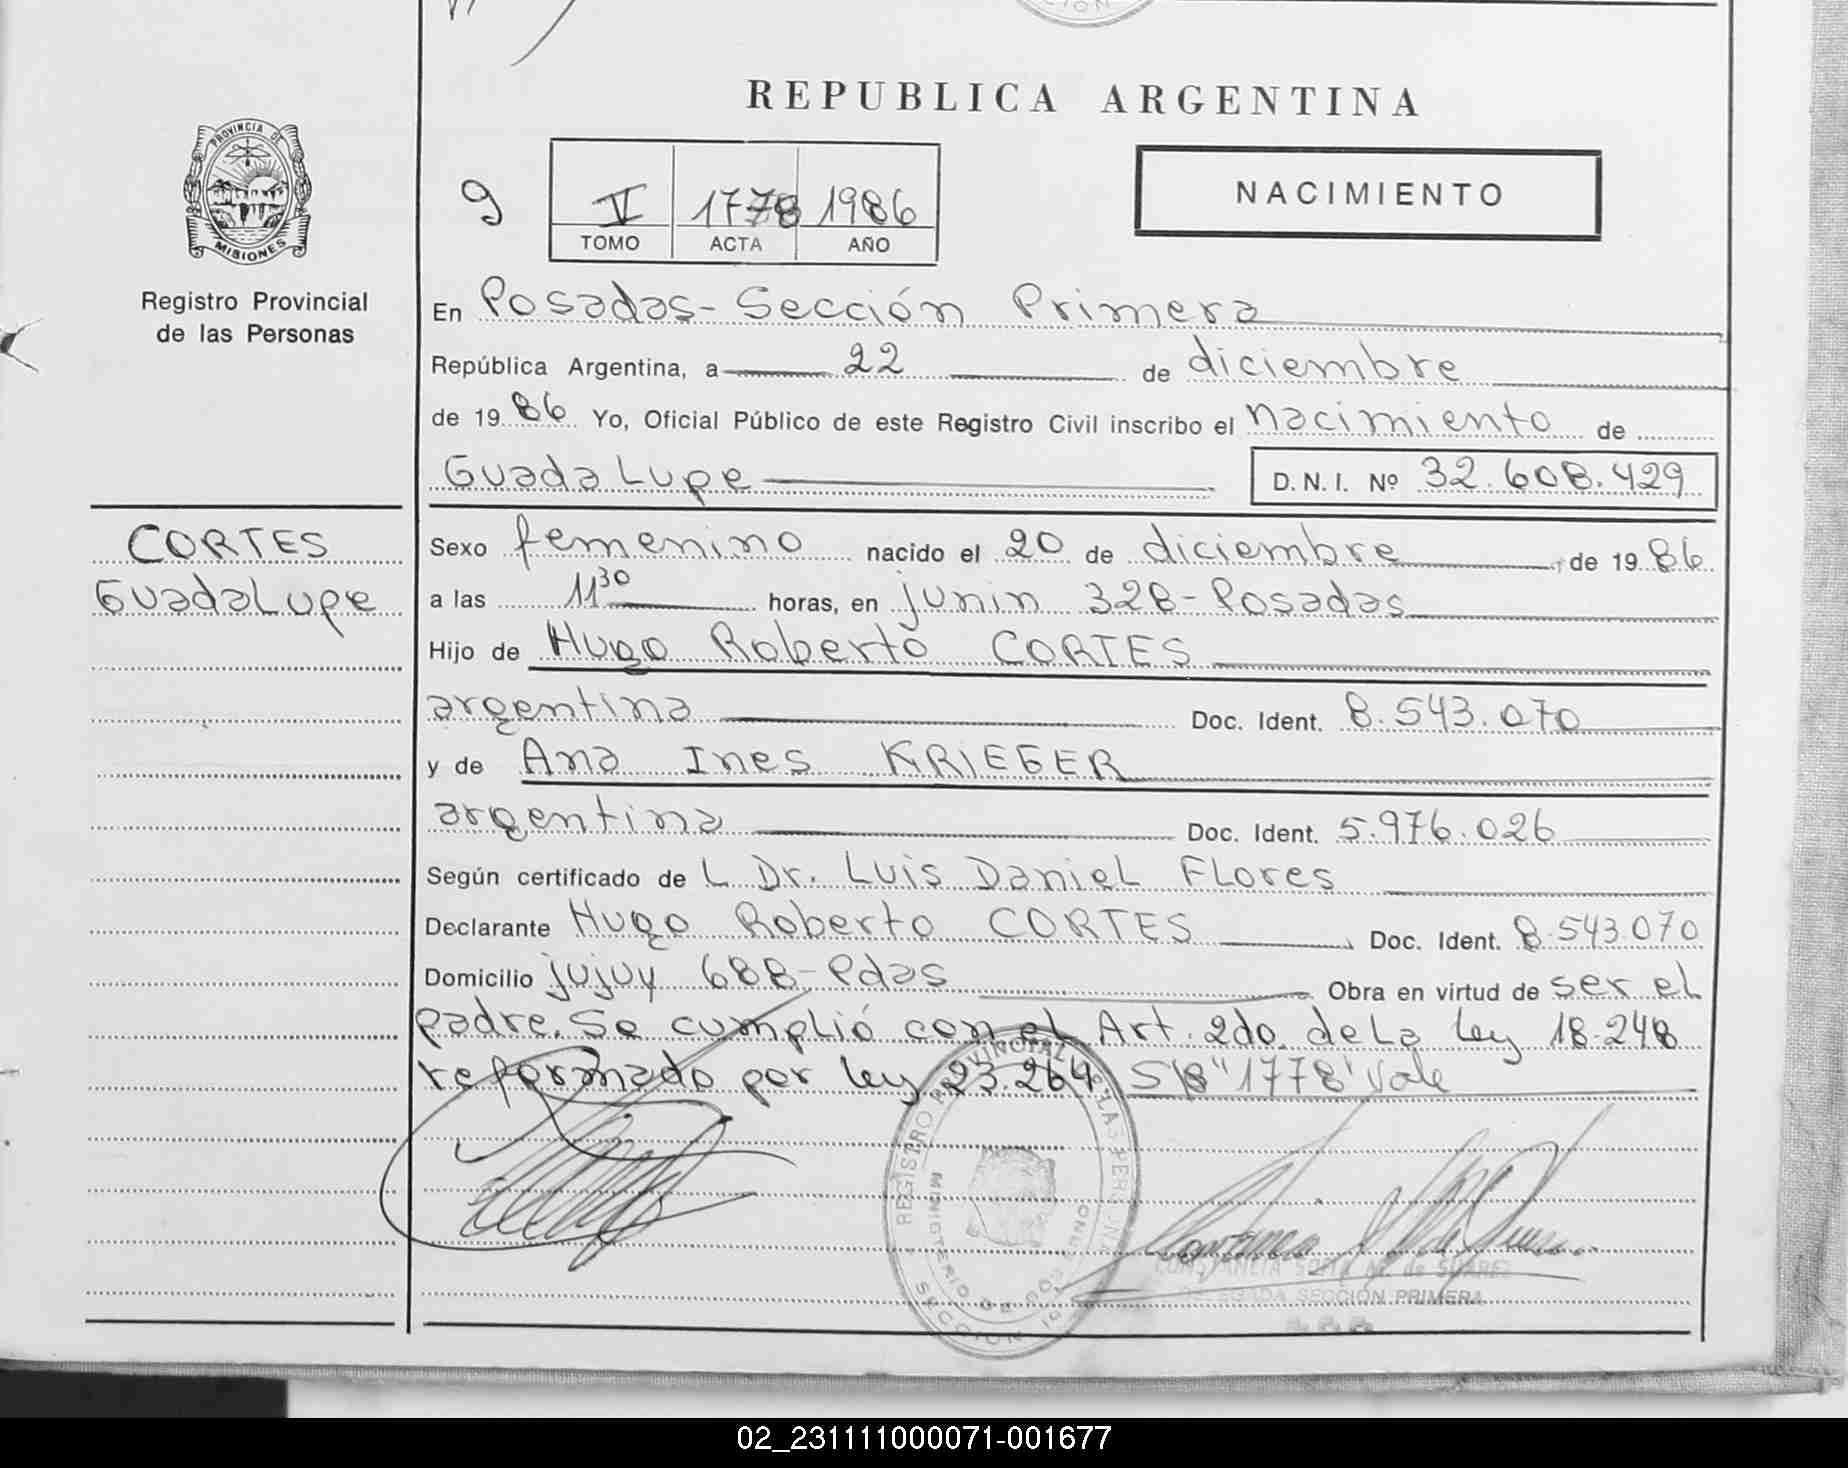 REPUBLICA ARGENTINA
PROVINCIA DE
MISIONES
Registro Provincial
de las Personas
9
V 1778 1986
TOMO ACTA AÑO
NACIMIENTO
En Posadas-Sección Primera
República Argentina, a 22 de diciembre
de 19 86 Yo, Oficial Público de este Registro Civil inscribo el nacimiento de
GuadaLupe D. N. I. Nº 32.608.429
CORTES
GuadaLupe
Sexo femenino nacido el 20 de diciembre de 19 86
a las 11 30 horas, en junin 328-Posadas
Hijo de Hugo Roberto CORTES
argentina Doc. Ident. 8.543.070
y de Ana Ines KRIEGER
argentina Doc. Ident. 5.976.026
Según certificado de L Dr. Luis DanieL FLores
Declarante Hugo Roberto CORTES Doc. Ident. 8.543.070
Domicilio jujuy 688-Pdas Obra en virtud de ser el
padre. Se cumplió con el Art. 2do. de La Ley 18.248
reformado por Ley 23.264. S/B "1778" Vale
REGISTRO PROVINCIAL DE LAS PERSONAS
MINISTERIO DE GOBIERNO
SECCION 1ª
CONSTANCIA SOFIA de SUAREZ
DELEGADA SECCIÓN PRIMERA
02_231111000071-001677